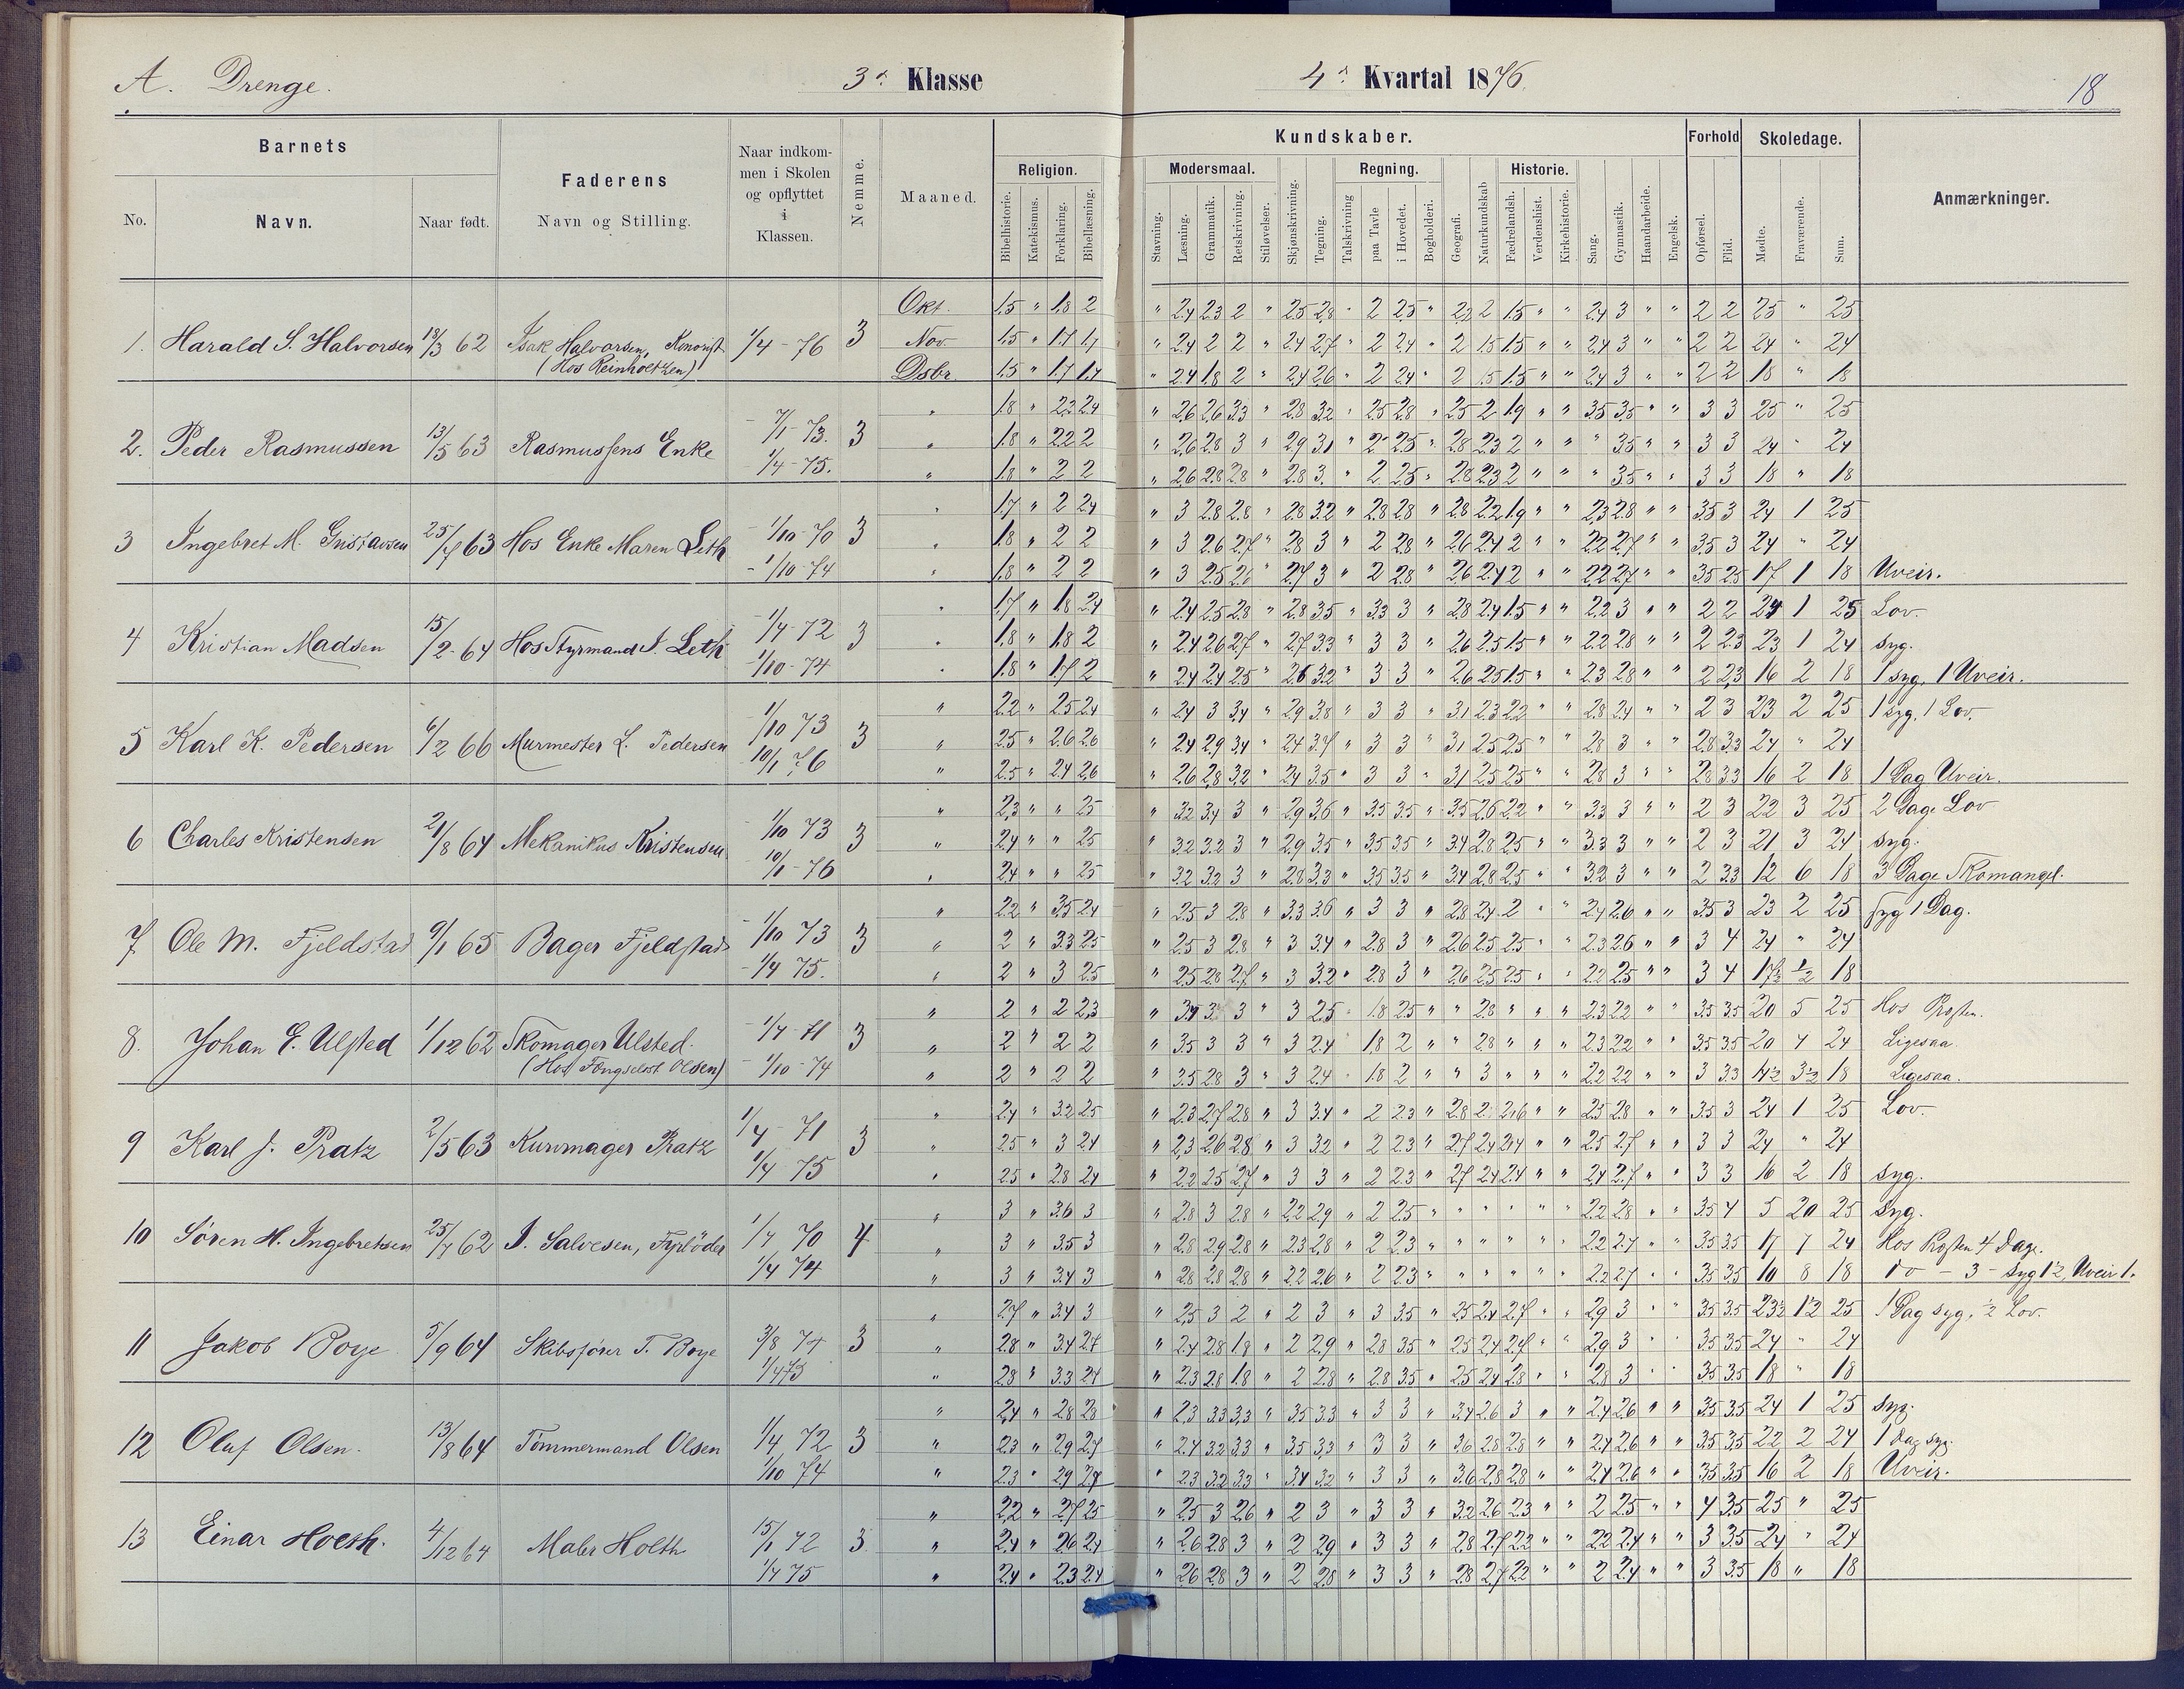 A. Drenge. 3die Klasse 4de Kvartal 1876. 18
Barnets
No. Navn. Naar født.
Faderens
Navn og Stilling.
Naar indkom-
men i Skolen
og opflyttet
i
Klassen.
Nemme.
Maaned.
Kundskaber.
Religion.
Bibelhistorie. Katekismus. Forklaring. Bibellæsning.
Modersmaal.
Stavning. Læsning. Grammatik. Retskrivning. Stiløvelser.
Skjønskrivning. Tegning.
Regning.
Talskrivning paa Tavle i Hovedet. Bogholderi.
Geografi. Naturkundskab
Historie.
Fædrelandsh. Verdenshist. Kirkehistorie.
Sang. Gymnastik. Haandarbeide. Engelsk.
Forhold
Opførsel. Flid.
Skoledage.
Mødte. Fraværende. Sum.
Anmærkninger.
1. Harald S. Halvorsen 18/3 62 Isak Halvorsen, Kononst (Hos Reinholtzen) 1/4 - 76 3
Okt. 1.5 " 1.8 2 " 2.4 2.3 2 " 2.5 2.8 " 2 2.5 " 2.2 2 1.5 " " 2.4 3 " " 2 2 25 " 25
Nov. 1.5 " 1.7 1.7 " 2.4 2 2 " 2.4 2.7 " 2 2.4 " 2 1.5 1.5 " " 2.4 3 " " 2 2 24 " 24
Dsbr. 1.5 " 1.7 1.7 " 2.4 1.8 2 " 2.4 2.6 " 2 2.4 " 2 1.5 1.5 " " 2.4 3 " " 2 2 18 " 18
2. Peder Rasmussen 13/5 63 Rasmussens Enke 7/1 - 73. 1/4 - 75. 3
" 1.8 " 2.2 2.4 " 2.6 2.6 3.3 " 2.8 3.2 " 2.5 2.8 " 2.5 2 1.9 " " 3.5 3.5 " " 3 3 25 " 25
" 1.8 " 2.2 2 " 2.6 2.8 3 " 2.9 3.1 " 2 2.5 " 2.8 2.3 2 " " " 3.5 " " 3 3 24 " 24
" 1.8 " 2 2 " 2.6 2.8 2.8 " 2.8 3. " 2 2.5 " 2.8 2.3 2 " " " 3.5 " " 3 3 18 " 18
3 Ingebret M. Gustavsen 25/7 63 Hos Enke Maren Leth 1/10 - 70 1/10 - 74 3
" 1.7 " 2 2.4 " 3 2.8 2.8 " 2.8 3.2 " 2.8 2.8 " 2.8 2.2 1.9 " " 2.3 2.8 " " 3.5 3 24 1 25
" 1.8 " 2 2 " 3 2.6 2.7 " 2.8 3 " 2 2.8 " 2.6 2.4 2 " " 2.2 2.7 " " 3.5 3 24 " 24
" 1.8 " 2 2 " 3 2.5 2.6 " 2.7 3 " 2 2.8 " 2.6 2.4 2 " " 2.2 2.7 " " 3.5 2.5 17 1 18 Uveir.
4 Kristian Madsen 15/2 - 64 Hos Styrmand J. Leth 1/4 - 72 1/10 - 74 3
" 1.7 " 1.8 2.4 " 2.4 2.5 2.8 " 2.8 3.5 " 3.3 3 " 2.8 2.4 1.5 " " 2.2 3 " " 2 2 24 1 25 Lov.
" 1.8 " 1.8 2 " 2.4 2.6 2.7 " 2.7 3.3 " 3 3 " 2.6 2.5 1.5 " " 2.2 2.8 " " 2 2.3 23 1 24 syg.
" 1.8 " 1.7 2 " 2.4 2.4 2.5 " 2.6 3.2 " 3 3 " 2.6 2.5 1.5 " " 2.3 2.8 " " 2 2.3 16 2 18 1 syg, 1 Uveir.
5 Karl K. Pedersen 6/2 66 Murmester L. Pedersen 1/10 73 10/1 76 3
" 2.2 " 2.5 2.4 " 2.4 3 3.4 " 2.9 3.8 " 3 3 " 3.1 2.3 2.2 " " 2.8 2.4 " " 2 3 23 2 25 1 syg, 1 Lov.
" 2.5 " 2.6 2.6 " 2.4 2.9 3.4 " 2.4 3.7 " 3 3 " 3.1 2.5 2.5 " " 2.8 3 " " 2.8 3.3 24 " 24
" 2.5 " 2.4 2.6 " 2.6 2.8 3.2 " 2.4 3.5 " 3 3 " 3.1 2.5 2.5 " " 2.8 3 " " 2.8 3.3 16 2 18 1 Dag Uveir.
6 Charles Kristensen 21/8 64 Mekanikus Kristensen 1/10 73 10/1 - 76 3
" 2.3 " " 2.5 " 3.2 3.4 3 " 2.9 3.6 " 3.5 3.5 " 3.5 2.6 2.2 " " 3.3 3 " " 2 3 22 3 25 2 Dage Lov
" 2.4 " " 2.5 " 3.2 3.2 3 " 2.9 3.5 " 3.5 3.5 " 3.4 2.8 2.5 " " 3.3 3 " " 2 3 21 3 24 syg.
" 2.4 " " 2.5 " 3.2 3.2 3 " 2.8 3.3 " 3.5 3.5 " 3.4 2.8 2.5 " " 3.2 3 " " 2 3.3 12 6 18 3 Dage Skomangel.
7 Ole M. Fjeldstad 9/1 65 Bager Fjeldstad 1/10 73 1/4 75. 3
" 2.2 " 3.5 2.4 " 2.5 3 2.8 " 3.3 3.6 " 3 3 " 2.8 2.4 2 " " 2.4 2.6 " " 3.5 3 23 2 25 syg 1 Dag.
" 2 " 3.3 2.5 " 2.5 3 2.8 " 3 3.4 " 2.8 3 " 2.6 2.5 2.5 " " 2.3 2.6 " " 3 4 24 " 24
" 2 " 3 2.5 " 2.5 2.8 2.7 " 3 3.2 " 2.8 3 " 2.6 2.5 2.5 " " 2.2 2.5 " " 3 4 17½ ½ 18
8. Johan E. Ulsted 1/12 62 Skomager Ulsted. (Hos Fængselsb. Olsen) 1/4 - 71 1/10 - 74 3
" 2 " 2 2.3 " 3.4 3 3 " 3 2.5 " 1.8 2.5 " " 2.8 " " " 2.3 2.2 " " 3.5 3.5 20 5 25 Hos Prosten.
" 2 " 2 2 " 3.5 3 3 " 3 2.4 " 1.8 2 " " 2.8 " " " 2.3 2.2 " " 3.5 3.5 20 4 24 Ligesaa.
" 2 " 2 2 " 3.5 2.8 3 " 3 2.4 " 1.8 2 " " 3 " " " 2.2 2.2 " " 3 3.3 14½ 3½ 18 Ligesaa.
9 Karl J. Pratz 2/5 63 Kurvmager Pratz 1/4 - 71 1/4 75 3
" 2.4 " 3.2 2.5 " 2.3 2.7 2.8 " 3 3.4 " 2 2.3 " 2.8 2 2.6 " " 2.5 2.8 " " 3.5 3 24 1 25 Lov.
" 2.5 " 3 2.4 " 2.3 2.6 2.8 " 3 3.2 " 2 2.3 " 2.7 2.4 2.4 " " 2.5 2.7 " " 3 3 24 " 24
" 2.5 " 2.8 2.4 " 2.2 2.5 2.7 " 3 3 " 2 2.3 " 2.7 2.4 2.4 " " 2.4 2.7 " " 3 3 16 2 18 syg.
10 Søren H. Ingebretsen 25/7 62 J. Salvesen, Fyrböder 1/4 70 1/4 74 4
" 3 " 3.6 3 " 2.8 3 2.8 " 2.2 2.9 " 2 2.5 " " " " " " 2.2 2.8 " " 3.5 4 5 20 25 Syg.
" 3 " 3.5 3 " 2.8 2.9 2.8 " 2.3 2.8 " 2 2.3 " " " " " " 2.2 2.7 " " 3.5 3.5 17 7 24 Hos Prosten 4 Dage.
" 3 " 3.4 3 " 2.8 2.8 2.8 " 2.2 2.6 " 2 2.3 " " " " " " 2.2 2.7 " " 3.5 3.5 10 8 18 Do - 3 - Syg 1½, Uveir 1.
11 Jakob Boye 5/9 64 Skibsfører T. Boye 3/8 74 1/4 75 3
" 2.7 " 3.4 3 " 2.5 3 2 " 2 3 " 3 3.5 " 2.5 2.4 2.7 " " 2.9 3 " " 3.5 3.5 23½ 1½ 25 1 Dag syg, ½ Lov.
" 2.8 " 3.4 2.7 " 2.4 2.8 1.8 " 2 2.9 " 2.8 3.5 " 2.5 2.4 2.7 " " 2.9 3 " " 3.5 3.5 24 " 24
" 2.8 " 3.3 2.7 " 2.3 2.8 1.8 " 2 2.8 " 2.8 3.5 " 2.5 2.4 2.8 " " 2.8 3 " " 3.5 3.5 18 " 18
12 Oluf Olsen. 13/8 64 Tömmermand Olsen 1/4 72 1/10 74 3
" 2.4 " 2.8 2.8 " 2.3 3.3 3.3 " 3.5 3.3 " 3 3 " 3.4 2.6 3 " " 2.4 2.6 " " 3.5 3.5 24 1 25 syg.
" 2.3 " 2.9 2.7 " 2.4 3.2 3.3 " 3.5 3.3 " 3 3 " 3.6 2.8 2.8 " " 2.4 2.6 " " 3.5 3.5 22 2 24 1 dag syg.
" 2.3 " 2.9 2.7 " 2.3 3.2 3.3 " 3.4 3.2 " 3 3 " 3.6 2.8 2.8 " " 2.4 2.6 " " 3.5 3.5 16 2 18 Uveir.
13 Einar Holth. 4/12 64 Maler Holth 15/1 72 1/4 75 3
" 2.2 " 2.7 2.5 " 2.5 3 2.6 " 2 3 " 3 3 " 3.2 2.6 2.3 " " 2 2.5 " " 4 3.5 25 " 25
" 2.4 " 2.6 2.4 " 2.6 2.8 3 " 2 2.9 " 3 3 " 2.8 2.7 2.2 " " 2.2 2.4 " " 3 3.5 24 " 24
" 2.4 " 2.3 2.4 " 2.6 2.8 3 " 2 2.8 " 3 3 " 2.8 2.7 2.2 " " 2 2.4 " " 3 3.5 18 " 18